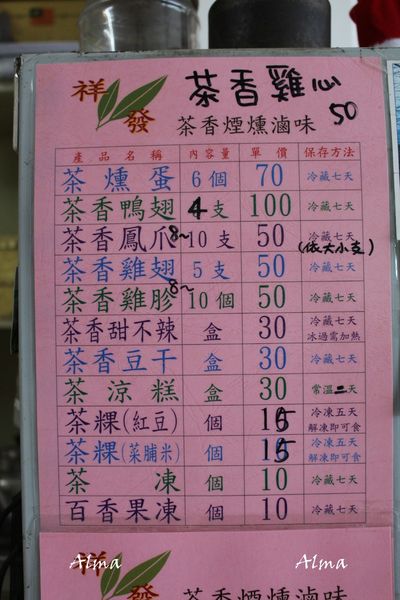 祥發
茶香雞心
50
茶香煙燻滷味
產品名稱 內容量 單價 保存方法
茶燻蛋 6個 70 冷藏七天
茶香鴨翅 4支 100 冷藏七天
茶香鳳爪 8~10支 50 冷藏七天
(依大小支)
茶香雞翅 5支 50 冷藏七天
茶香雞胗 8~10個 50 冷藏七天
茶香甜不辣 盒 30 冷藏七天
冰過需加熱
茶香豆干 盒 30 冷藏七天
茶涼糕 盒 30 常溫二天
茶粿(紅豆) 個 15 冷凍五天
解凍即可食
茶粿(菜脯米) 個 15 冷凍五天
解凍即可食
茶凍 個 10 冷藏七天
百香果凍 個 10 冷藏七天
Alma Alma
祥發
茶香煙燻滷味